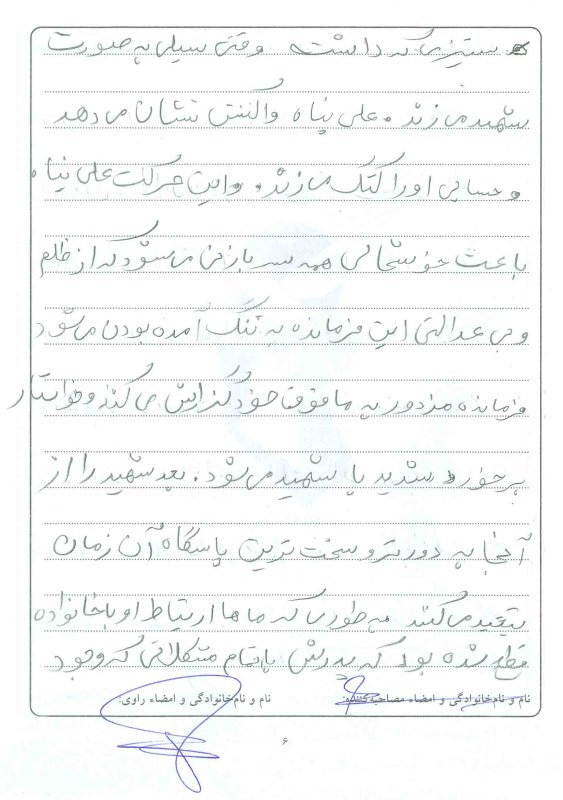 ستیزی که داشت وقتی سیلی به صورت
شهید می زند. علی پناه واکنش نشان می دهد
و حسابی او را کتک می زند. و این حرکت علی پناه
باعث خوشحالی همه سربازان می شود که از ظلم
و بی عدالتی این فرمانده به تنگ آمده بودن می شود
فرمانده مزدور به مافوق خود گزارش می کند و خواستار
برخورد شدید با شهید می شود. بعد شهید را از
آنجا به دورترو سخت ترین پاسگاه آن زمان
تبعید می کنند به طوری که ماها ارتباط او با خانواده
قطع شده بود که پدرش با تمام مشکلاتی که وجود
نام و نام خانوادگی و امضاء مصاحبه کننده: نام و نام خانوادگی و امضاء راوی:
۶